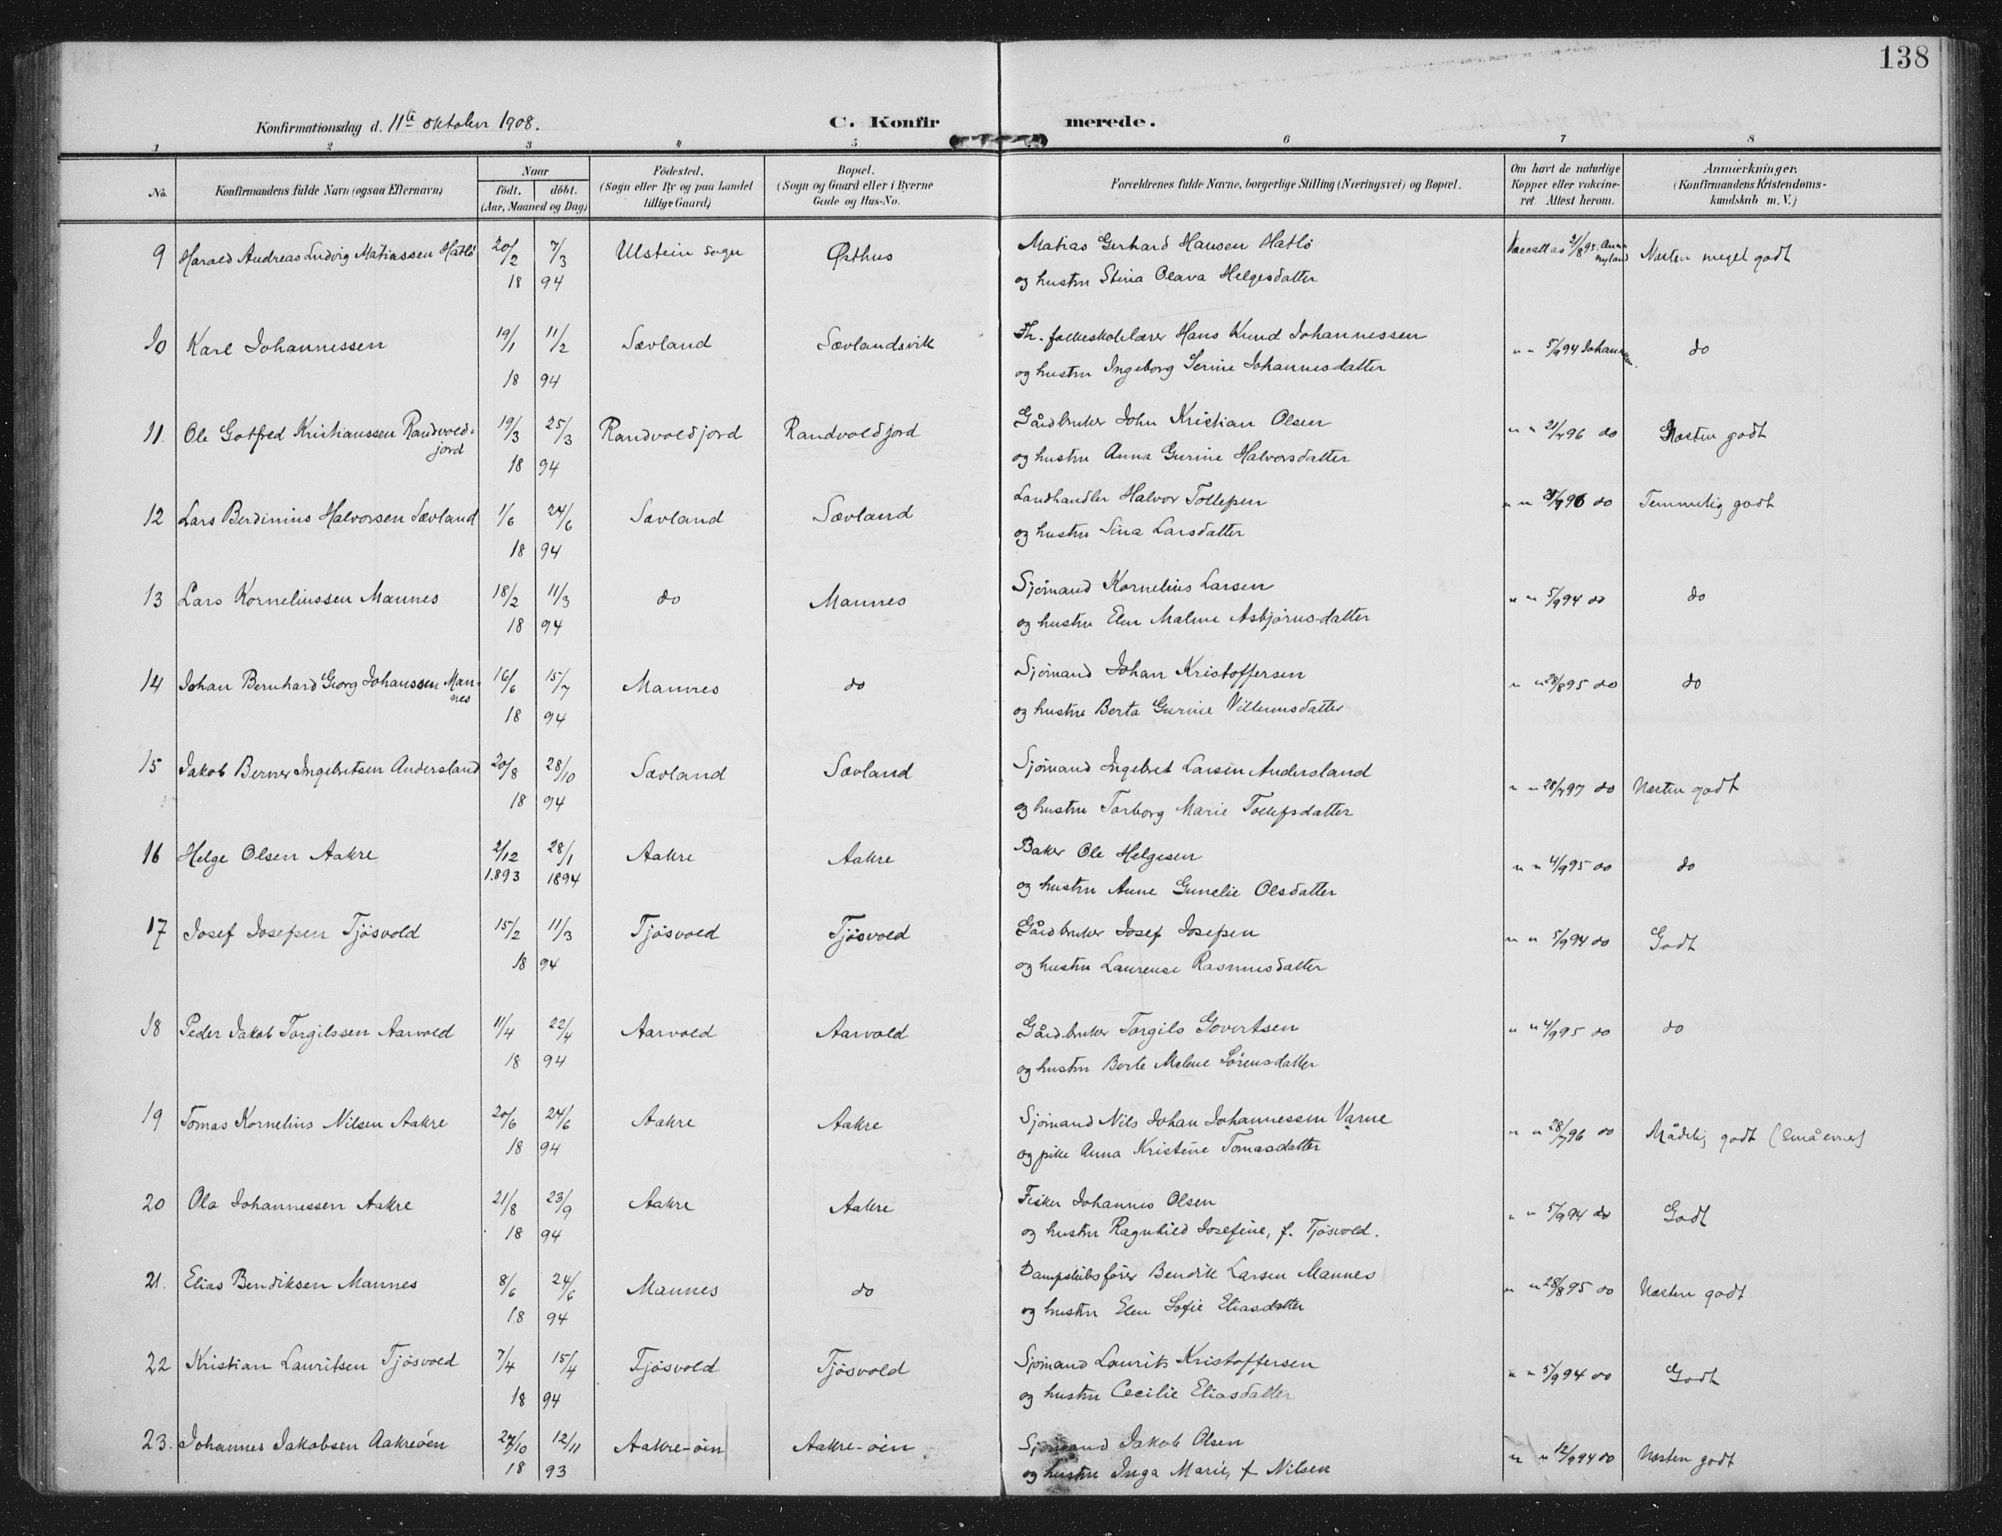 138
Konfirmationsdag d. 11te oktober 1908.
C. Konfir
merede.
1 2 3 4 5 6 7 8
No.
Konfirmandens fulde Navn (ogsaa Efternavn)
Naar
födt. döbt.
(Aar, Maaned og Dag)
Födested.
(Sogn eller By og paa Landet
tillige Gaard)
Bopæl.
(Sogn og Gaard eller i Byerne
Gade og Hus-No.
Forældrenes fulde Navne, borgerlige Stilling (Næringsvei) og Bopæl.
Om havt de naturlige
Kopper eller vakcine-
ret. Attest herom.
Anmærkninger.
(Konfirmandens Kristendoms-
kundskab m. V.)
9 Harald Andreas Ludvig Matiassen Hatlö 20/2 7/3 Ulstein sogn Østhus Matias Gerhard Hansen Hatlö Næsten meget godt
18 94 og hustru Stina Olava Helgesdatter
10 Karl Johannessen 19/1 11/2 Sævland Sævlandsvik Fh. folkeskolelærer Hans Knud Johannessen " " 5/9 94 Johannessen. do
18 94 og hustru Ingeborg Serine Johannesdatter
11. Ole Gotfred Kristianssen Randvold- 19/3 25/3 Randvoldfjord Randvoldfjord Gårdbruker John Kristian Olsen " " 21/7 96 do Næsten godt
jord
18 94 og hustru Anna Gurine Halvorsdatter
12 Lars Berdinius Halvorsen Sævland 1/6 24/6 Sævland Sævland Landhandler Halvor Tollefsen " " 28/7 96 do Temmelig godt
18 94 og hustru Sina Larsdatter
13 Lars Korneliussen Mannes 18/2 11/3 do Mannes Sjømand Kornelius Larsen " " 5/9 94 do do
18 94 og hustru Elen Malene Asbjørnsdatter
14 Johan Bernhard Georg Johanssen Man- 16/6 15/7 Mannes do Sjømand Johan Kristoffersen " " 28/8 95 do do
nes
18 94 og hustru Berta Gurine Villumsdatter
15 Jakob Berner Ingebretsen Andersland 20/8 28/10 Sævland Sævland Sjømand Ingebret Larsen Andersland " " 28/7 97 do Næsten godt
18 94 og hustru Torborg Marie Tollefsdatter
16 Helge Olsen Aakre 2/12 28/1 Aakre Aakre Baker Ole Helgesen " " 4/9 95 do do
1893 1894 og hustru Anne Gunelie Olsdatter
17 Josef Josefsen Tjösvold 15/2 11/3 Tjösvold Tjösvold Gårdbruker Josef Josefsen " " 5/9 94 do Godt
18 94 og hustru Laurense Rasmusdatter
18 Peder Jakob Torgilssen Aarvold 11/4 22/4 Aarvold Aarvold Gårdbruker Torgils Govertsen " " 4/9 95 do do
18 94 og hustru Berte Malene Sörensdatter
19 Tomas Kornelius Nilsen Aakre 20/6 24/6 Aakre Aakre Sjømand Nils Johan Johannessen Varne " " 28/7 96 do Mådelig godt (små evner)
18 94 og pike Anna Kristine Tomasdatter
20 Ola Johannessen Aakre 21/8 23/9 Aakre Aakre Fisker Johannes Olsen " " 5/9 94 do Godt
18 94 og hustru Ragnhild Josefine, f. Tjösvold.
21. Elias Bendiksen Mannes 8/6 24/6 Mannes do Dampskibsfører Bendik Larsen Mannes " " 28/8 95 do Næsten godt
18 94 og hustru Elen Sofie Eliasdatter
22 Kristian Lauritsen Tjösvold 7/4 15/4 Tjösvold Tjösvold Sjømand Laurits Kristoffersen " " 5/9 94 do Godt
18 94 og hustru Cecilie Eliasdatter
23. Johannes Jakobsen Aakreöen 27/10 12/11 Aakre-öen Aakre-öen Sjømand Jakob Olsen " " 12/9 94 do Næsten godt
18 93 og hustru Inga Marie, f. Nilsen